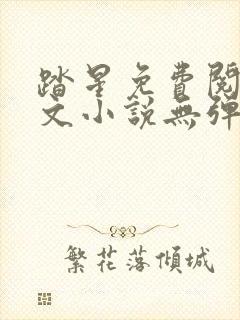 踏星免費閱
文小說無彈
繁花落傾城